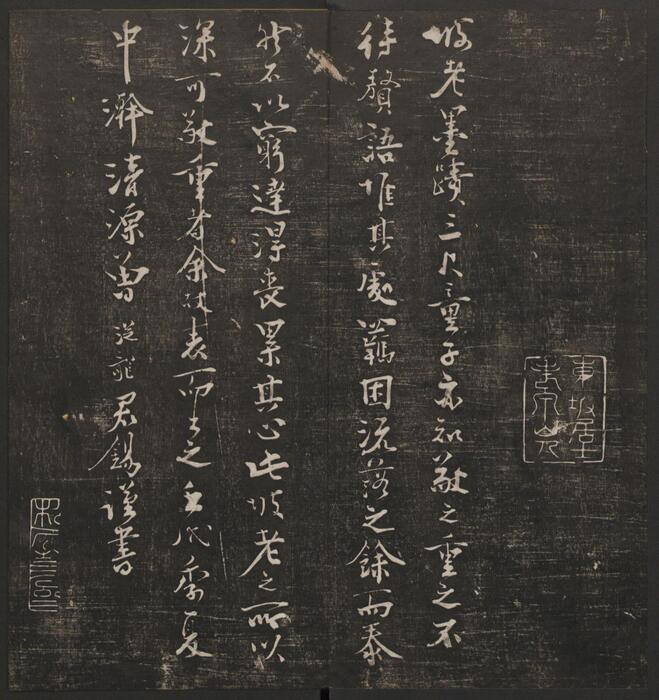 坡老墨蹟三尺童子亦知敬之重之不
待贅語惟其處羈困流落之餘而泰
然不以窮達得喪累其心此坡老之所以
深可敬重者余故表而出之季夏
中澣清源曾從龍君錫謹書